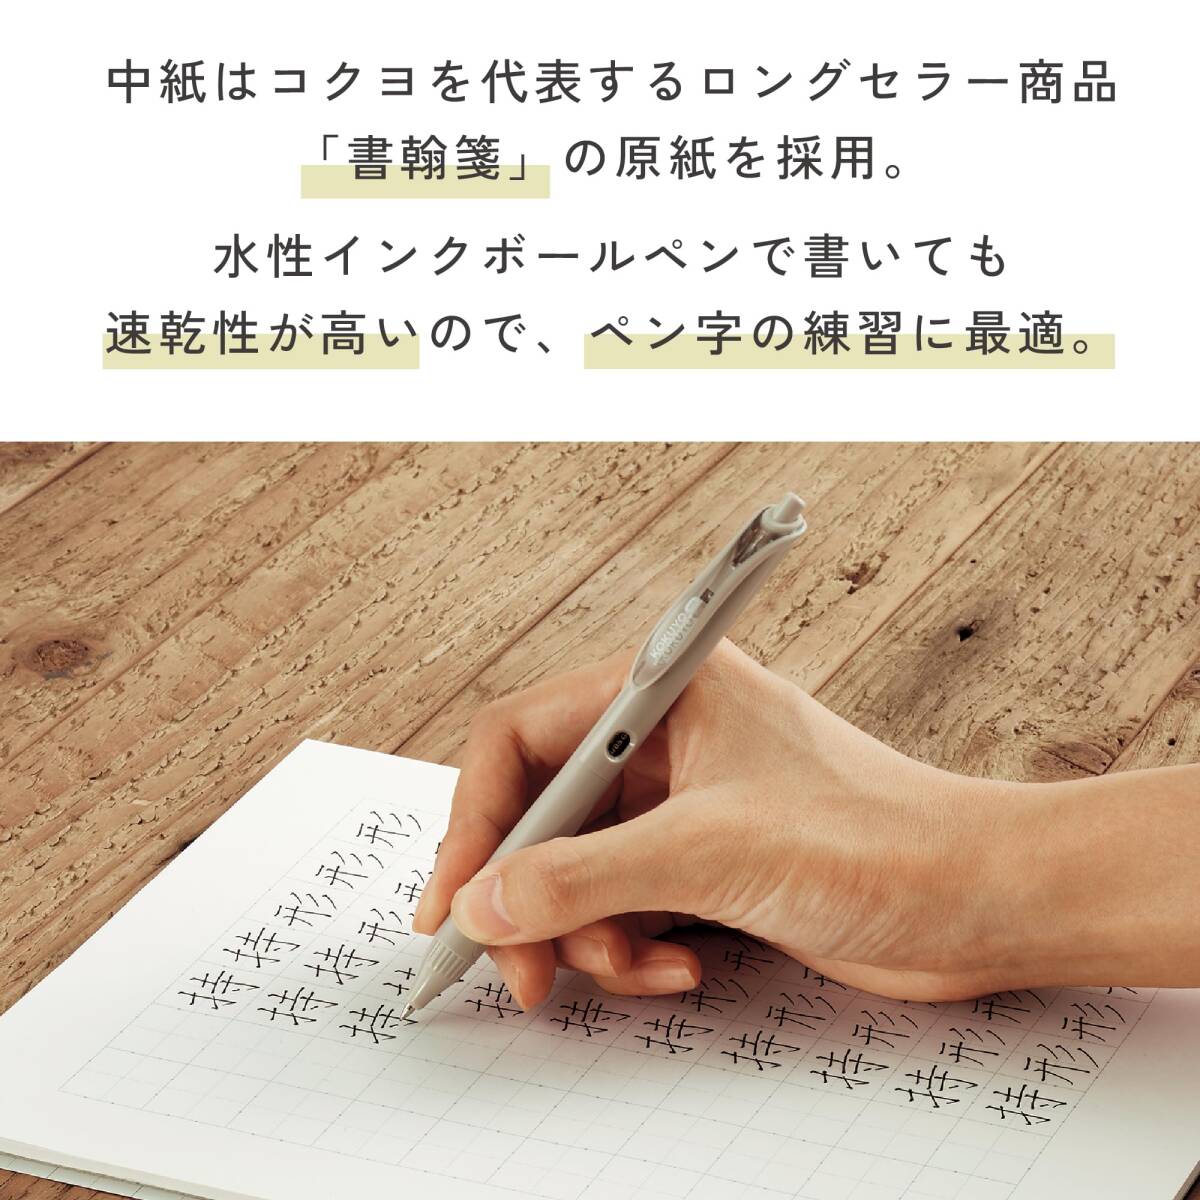 中紙はコクヨを代表するロングセラー商品
「書翰箋」の原紙を採用。
水性インクボールペンで書いても
速乾性が高いので、ペン字の練習に最適。
KOKUYO
形 形 形 持 持
形 形 持 持
持 持
持
持
形 形 持
形 形 持
形 形 持
形 形 持
形 形 持